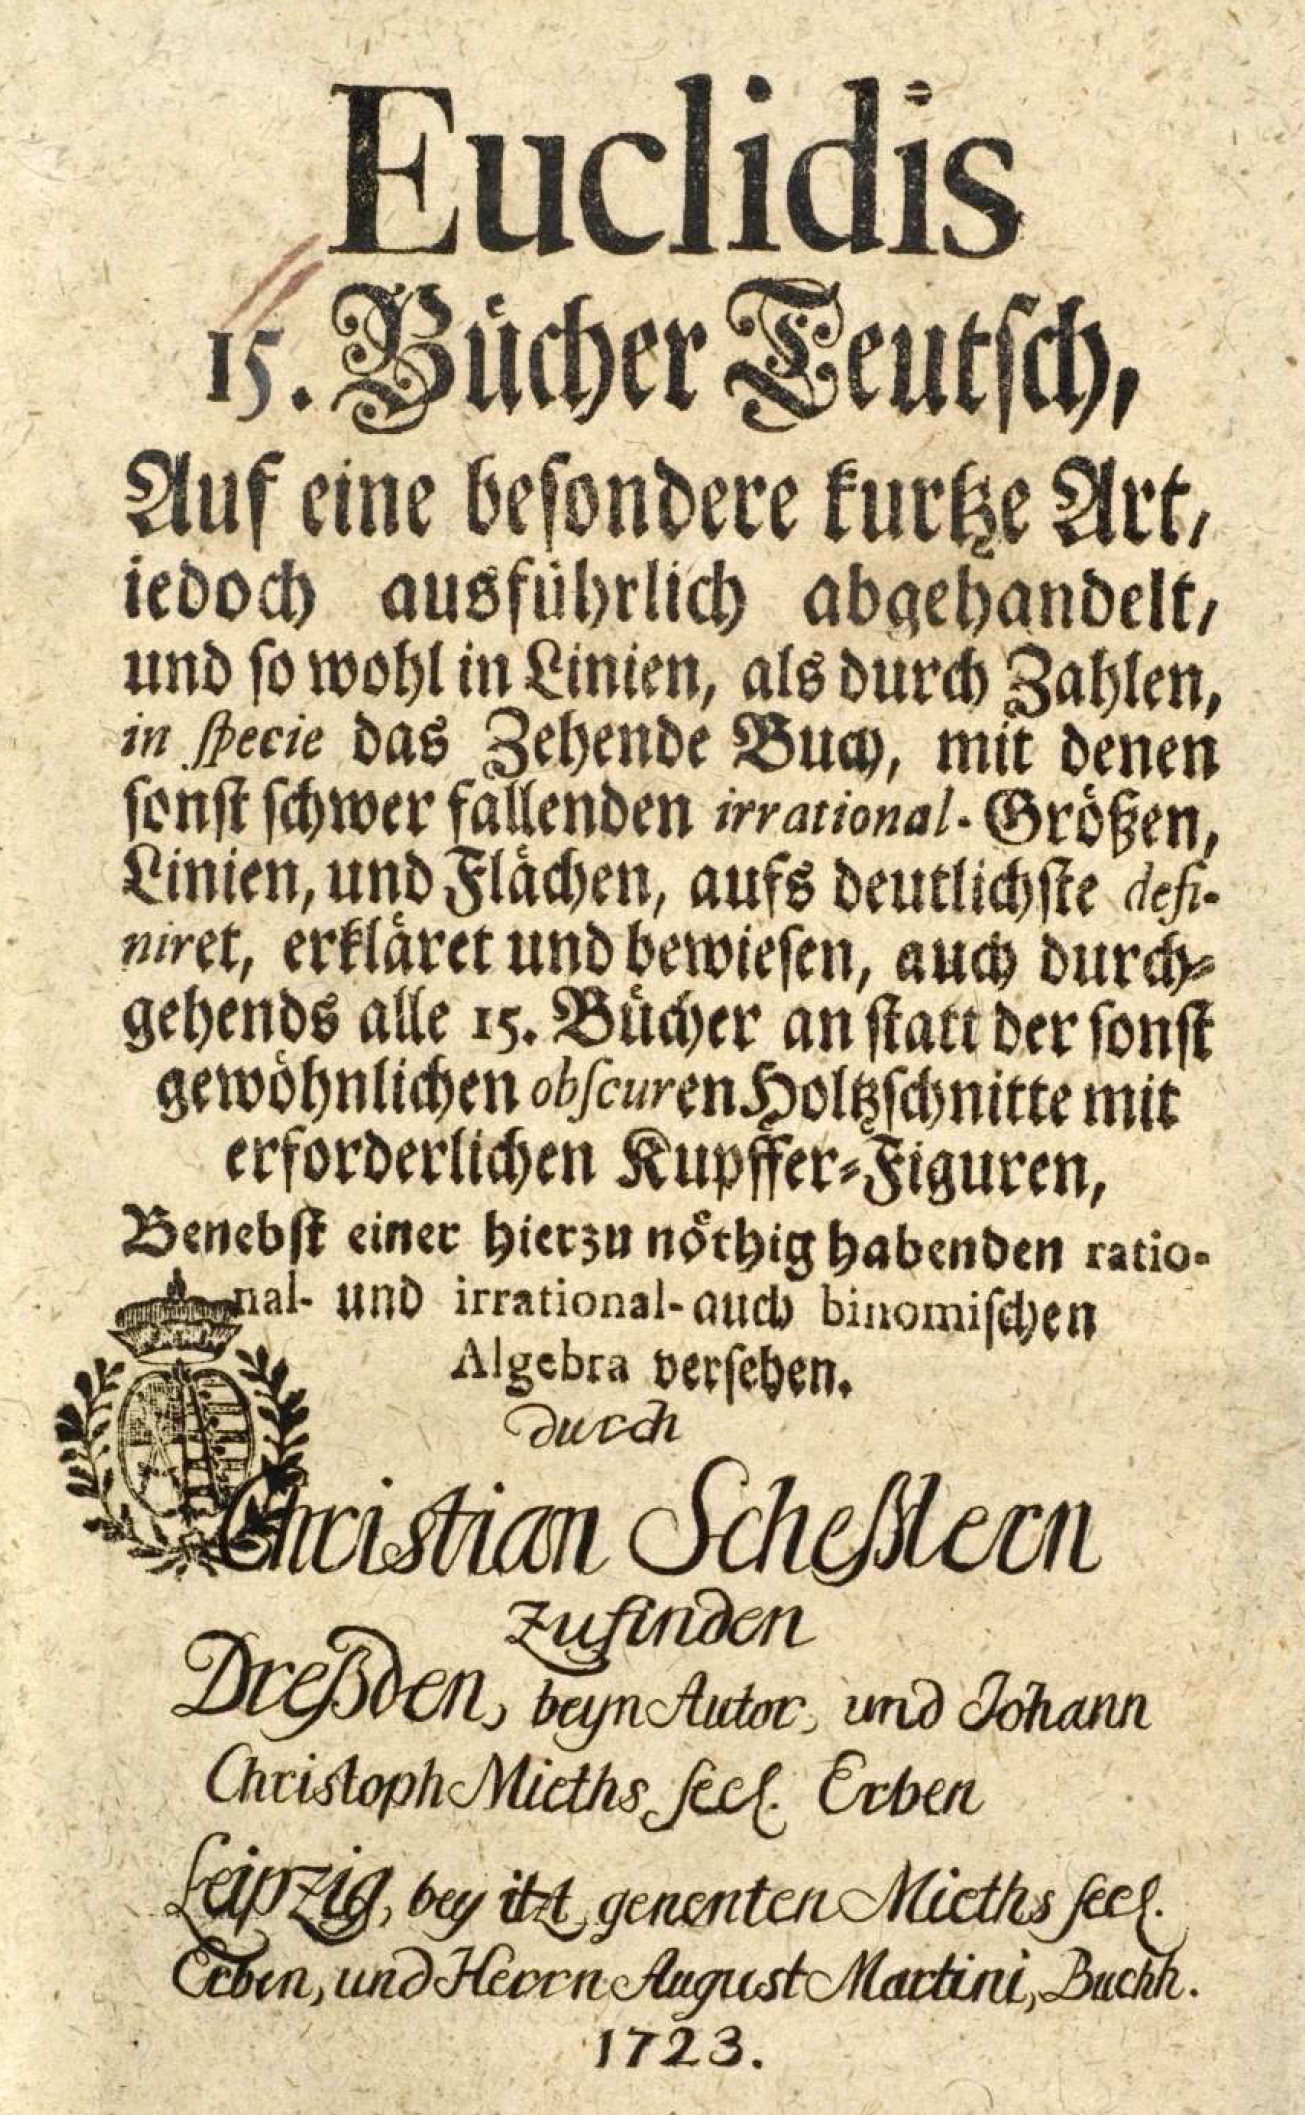 Euclidis
15. Bücher Teutſch,
Auf eine beſondere kurtze Art,
iedoch ausführlich abgehandelt,
und ſo wohl in Linien, als durch Zahlen,
in ſpecie das Zehende Buch, mit denen
ſonſt ſchwer fallenden irrational- Größen,
Linien, und Flächen, aufs deutlichſte defi-
niret, erkläret und bewieſen, auch durch-
gehends alle 15. Bücher an ſtatt der ſonſt
gewöhnlichen obſcuren Holtzſchnitte mit
erforderlichen Kupffer-Figuren,
Benebſt einer hierzu nöthig habenden ratio-
nal- und irrational- auch binomiſchen
Algebra verſehen.
durch
Christian Scheßlern
zufinden
Dreßden, beyn Autor, und Johann
Christoph Mieths ſeel. Erben
Leipzig, bey itzt genenten Mieths ſeel.
Erben, und Herrn August Martini, Buchh.
1723.